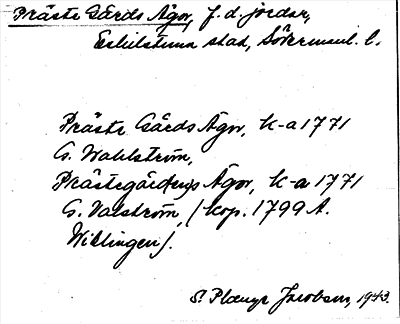 Präste Gårds Ägor, f.d. jordar,
Eskilstuna stad, Södermanl. l.
Präste Gårds Ägor, k-a 1771
G. Wahlström,
Prästegårdens Ägor, k-a 1771
G. Valström, (kop. 1799 A.
Willingen).
S. Jacobsen, 1943.